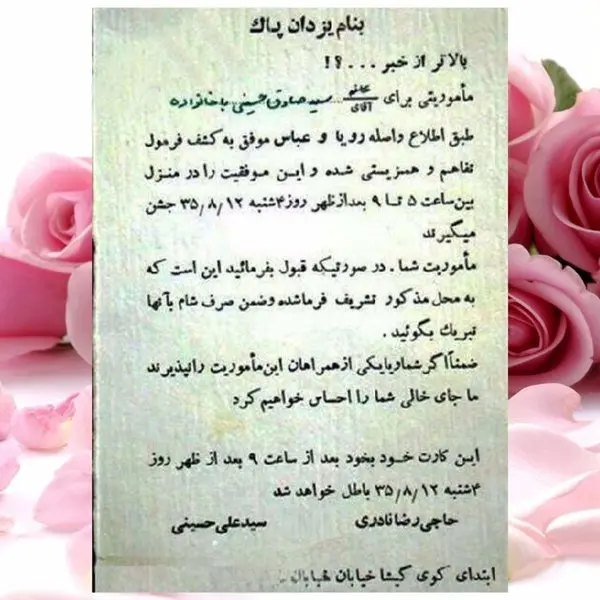 بنام یزدان پاک
بالاتر از خبر . . . ؟ !
مأموریتی برای خانم / آقای سید صادق حسینی با خانواده
طبق اطلاع واصله رویا و عباس موفق به کشف فرمول
تفاهم و همزیستی شده و ایـن مـوفقیت را در منزل
بین ساعت ۵ تـا ۹ بعداز ظهر روز ۴شنبه ۳۵/۸/۱۲ جشن
میگیرند
مأموریت شما . در صورتیکه قبول بفرمائید این است که
به محل مذکور تشریف فرما شده وضمن صرف شام با آنها
تبریک بگوئید .
ضمناً اگر شما و یا یکی از همراهان این مأموریت را نپذیرند
ما جای خالی شما را احساس خواهیم کرد
ایـن کارت خـود بخود بعد از ساعت ۹ بعد از ظهر روز
۴شنبه ۳۵/۸/۱۲ باطل خواهد شد
حاجی رضا نادری سید علی حسینی
ابتدای کوی گیشا خیابان خیابان